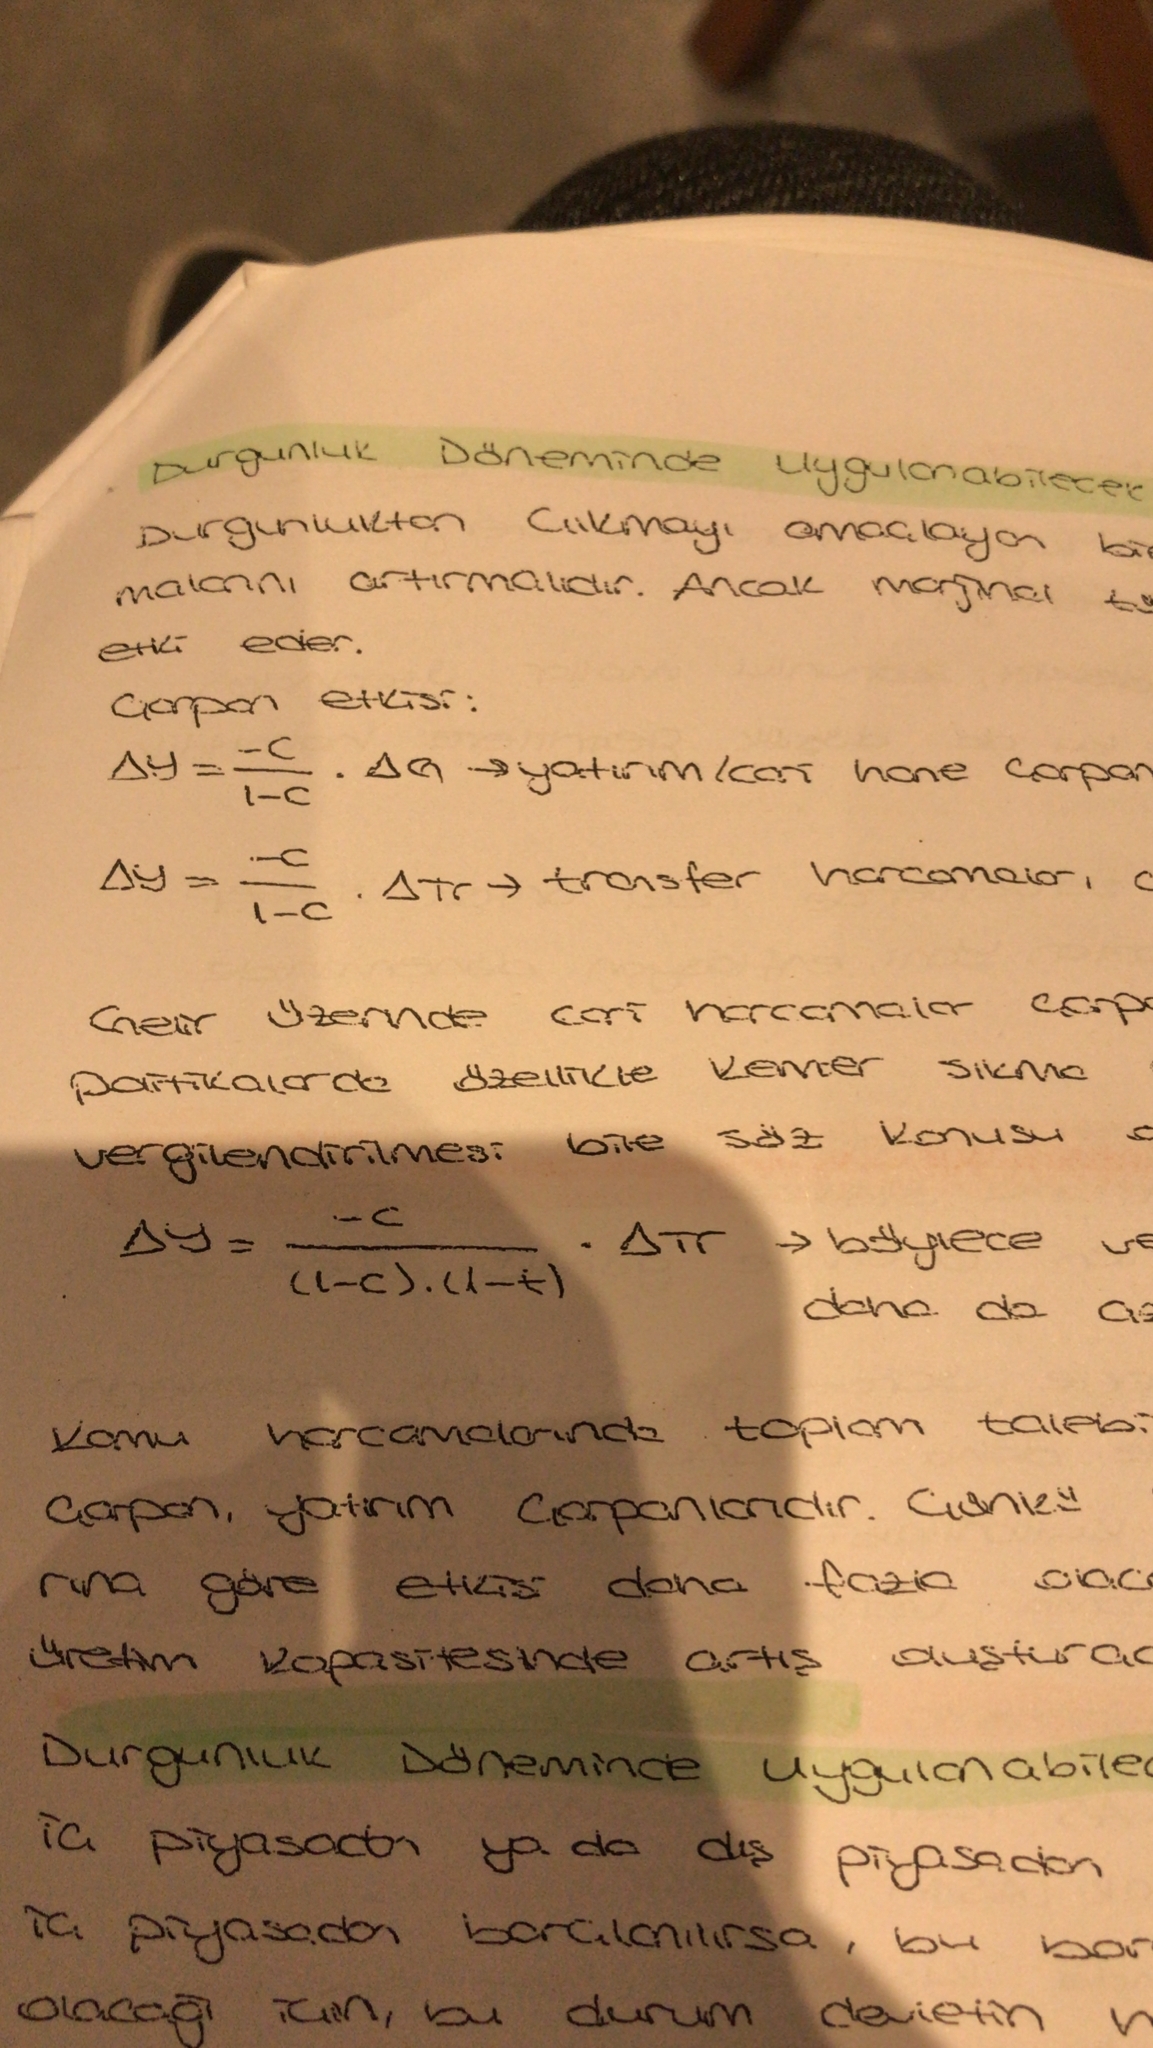 Durgunluk Döneminde Uygulanabilecek
Durgunluktan Çıkmayı amaçlayan
malarını artırmalıdır. Ancak marjinal
etki eder.
Çarpan etkisi:
ΔY = -c / 1-c . ΔG → yatırım/cari harc çarpan
ΔY = -c / 1-c . ΔTr → transfer harcamaları
Gelir üzerinde cari harcamalar
politikalarda özellikle kemer sıkma
vergilendirilmesi bile söz konusu
ΔY = -c / (1-c).(1-t) . ΔTr → böylece
daha da
Kamu harcamalarında toplam talebi
Çarpan, yatırım Çarpanlarıdır. Çünkü
rına göre etkisi daha fazla
üretim kapasitesinde artış
Durgunluk Döneminde
İç piyasadan ya da dış piyasadan
İç piyasadan borçlanılırsa, bu
olacağı için, bu durum devletin